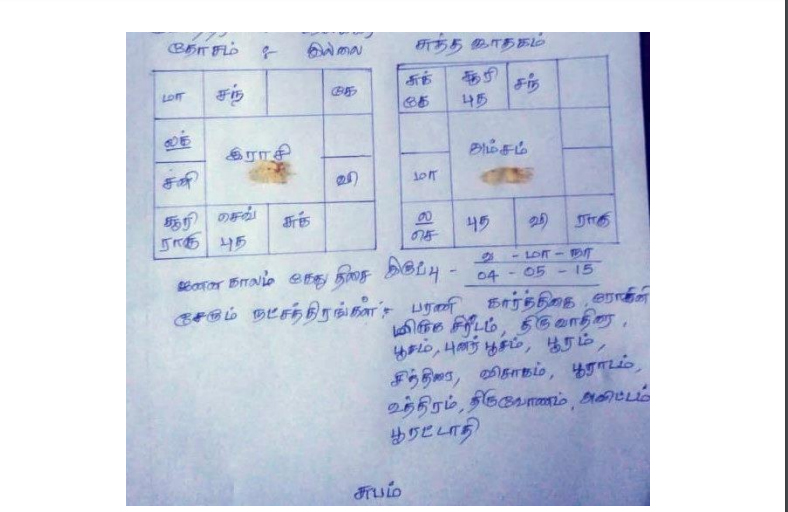 தோசம் :- இல்லை
சுத்த ஜாதகம்
மா சந் கே
லக்
இராசி
சனி வி
சூரி ராகு செவ் புத சுக்
சுக் கே சூரி புத சந்
அம்சம்
மா
ல செ புத வி ராகு
ஜனன காலம் கேது திசை இருப்பு - வ - மா - நா
04 - 05 - 15
சேரும் நட்சத்திரங்கள் :- பரணி கார்த்திகை, ரோகிணி
மிருக சிரீடம், திருவாதிரை,
பூசம், புனர் பூசம், பூரம்,
சித்திரை, விசாகம், பூராடம்,
உத்திரம், திருவோணம், அவிட்டம்
பூரட்டாதி
சுபம்